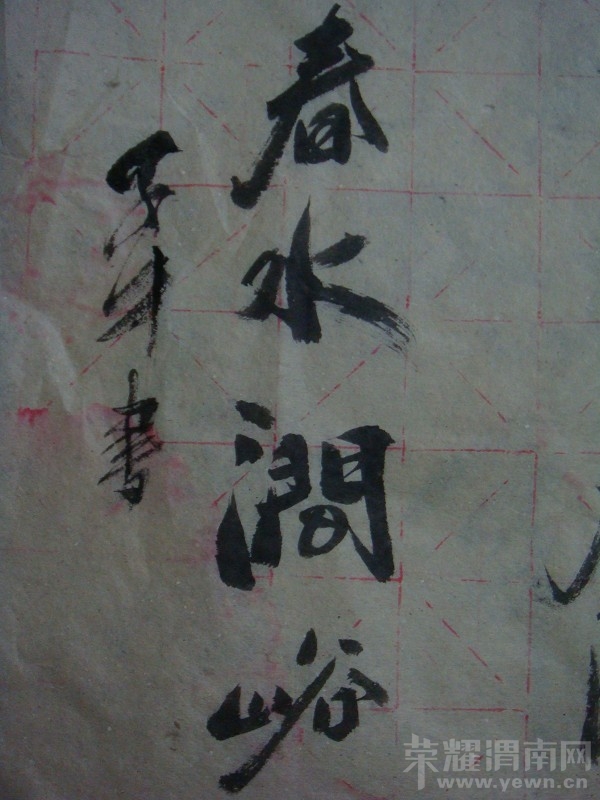 春水澗峪
书
荣耀渭南网
www.yewn.cn